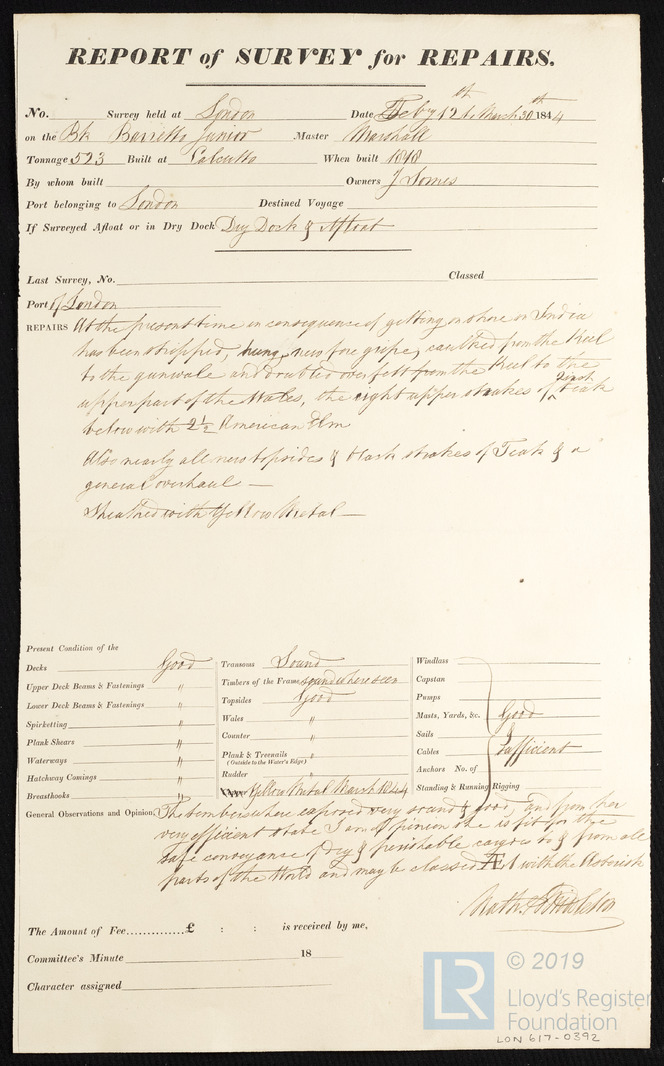 REPORT of SURVEY for REPAIRS.
No. Survey held at London Date Feby 12th to March 30th 1844
on the Bk Barretto Junior Master Marshall
Tonnage 523 Built at Calcutta When built 1818
By whom built Owners J Somes
Port belonging to London Destined Voyage
If Surveyed Afloat or in Dry Dock Dry Dock & Afloat
Last Survey, No. Classed
Port of London
REPAIRS At the present time in consequence of getting on shore in India
has been stripped, hung, new fore gripe, caulked from the Keel
to the gunwale and doubled over felt from the Keel to the
upper part of the Wales, the eight upper strakes of 2 inch Teak
below with 2 1/2 American Elm
Also nearly all new topsides & black strakes of Teak & a
general overhaul —
Sheathed with Yellow Metal —
Present Condition of the
Decks Good
Upper Deck Beams & Fastenings "
Lower Deck Beams & Fastenings "
Spirketting "
Plank Shears "
Waterways "
Hatchway Comings "
Breasthooks "
Transoms Sound
Timbers of the Frame sound where seen
Topsides Good
Wales "
Counter "
Plank & Treenails "
(Outside to the Water's Edge)
Rudder "
Yellow Metal March 1844
Windlass
Capstan
Pumps
Masts, Yards, &c. Good
Sails &
Cables Sufficient
Anchors No. of
Standing & Running Rigging
General Observations and Opinion. The timbers where exposed very sound & good, and from her
very efficient state I am of opinion she is fit for the
safe conveyance of Dry & perishable cargoes to & from all
parts of the World and may be classed Æ1 with the Asterisk
Nath. Middleton
The Amount of Fee..............£ : : is received by me,
Committee's Minute 18
Character assigned
LR
© 2019
Lloyd's Register
Foundation
LON 617-0392